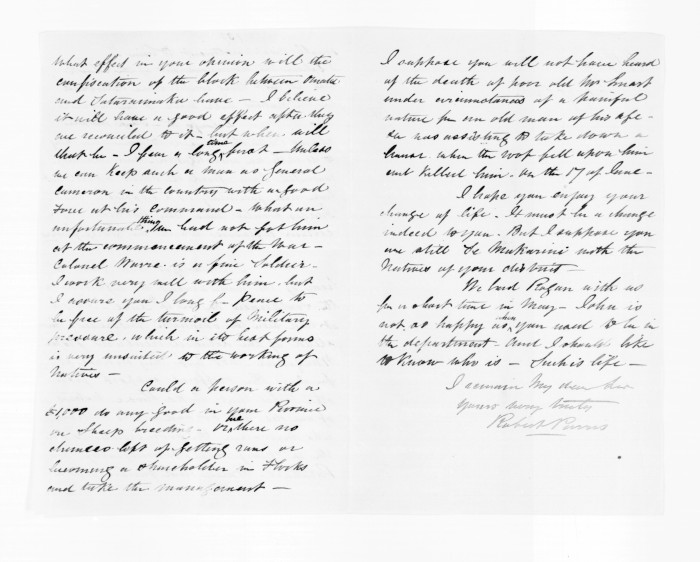 What effect in your opinion will the
confiscation of the block between Omata
and Tataraimaka have – I believe
it will have a good effect after they
are reconciled to it – but when will
that be – I fear a long time first – Unless
we can keep such a man as General
Cameron in the country with a good
Force at his command – What an
unfortunate thing we had not got him
at the commencement of the War –
Colonel Warre is a fine Soldier –
I work very well with him, but
I assure you I long for peace to
be free of the turmoil of Military
pressure, which in its best forms
is very unsuited to the working of
Natives –
Could a person with a
£1,000 do any good in your Province
on Sheep breeding – or are there no
chances left of getting runs or
becoming a shareholder in Flocks
and take the management –
I suppose you will not have heard
of the death of poor old Mr Smart
under circumstances of a painful
nature for an old man of his age –
he was assisting to take down a
house when the roof fell upon him
and killed him. on the 17 of June –
I hope you enjoy your
change of life. It must be a change
indeed to you. But I suppose you
are still Te Makarini with the
Natives of your district –
We had Rogan with us
for a short time in May – John is
not as happy as when you used to be in
the department – and I should like
to know who is – Such is life –
I remain My dear Sir
Yours very truly
Robert Parris